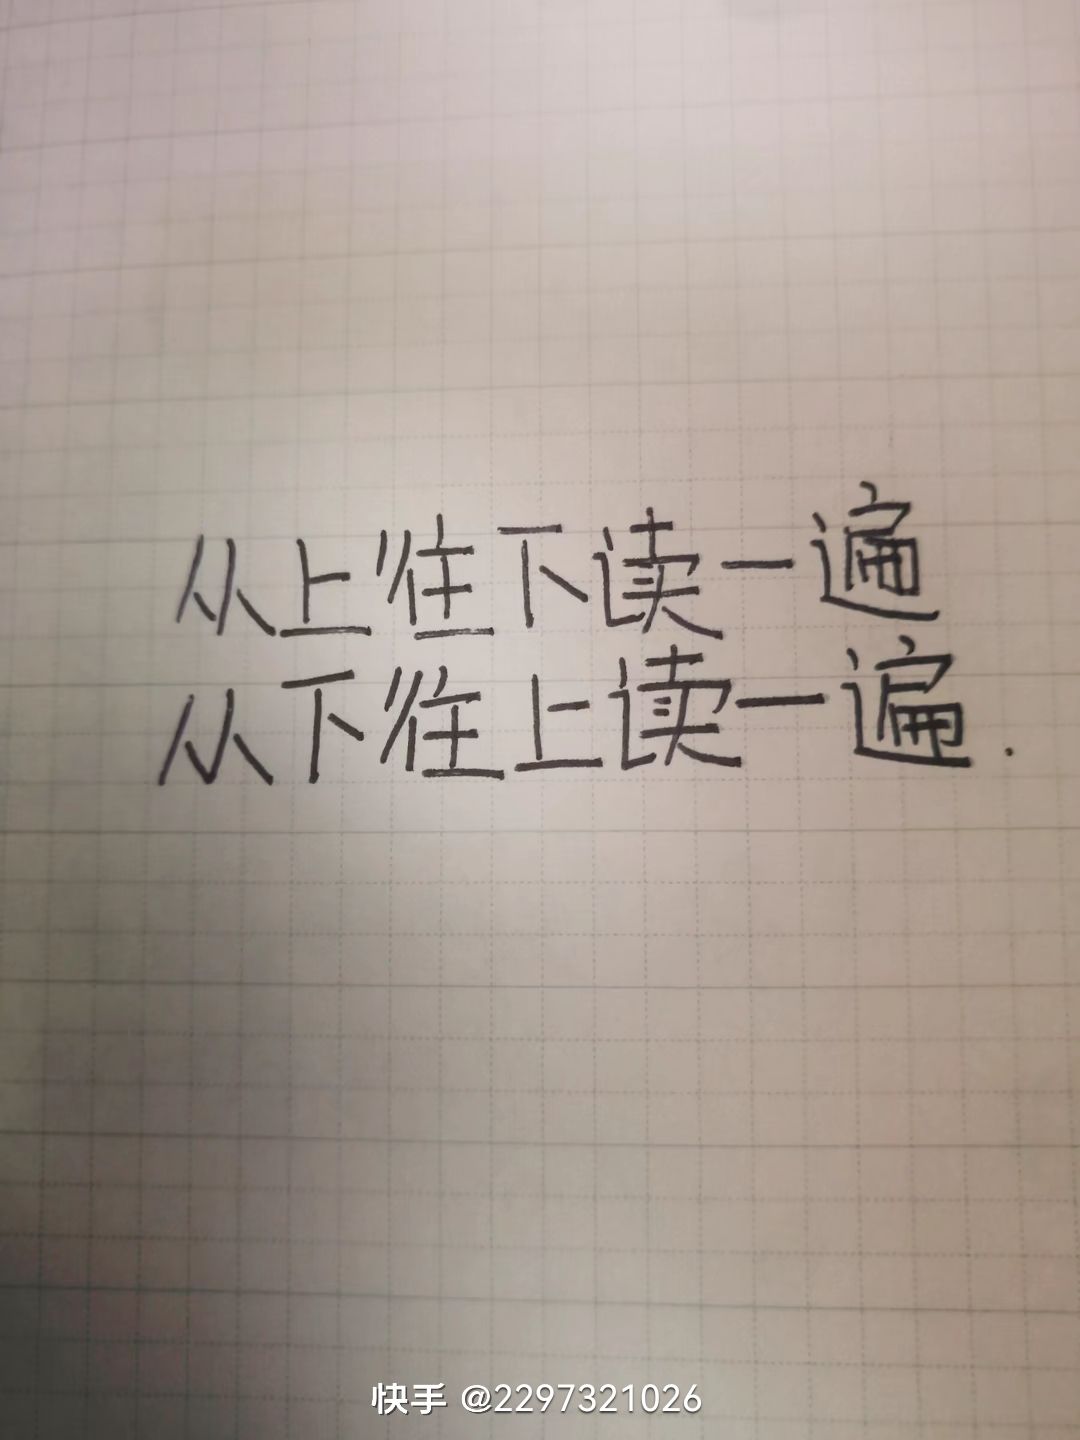 从上往下读一遍
从下往上读一遍.
快手 @2297321026